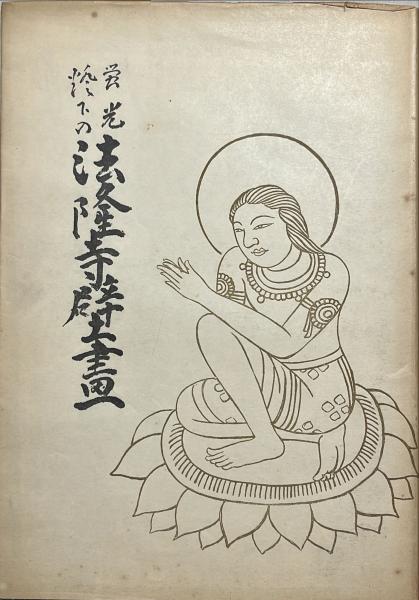 螢光
燈下の
法隆寺壁画